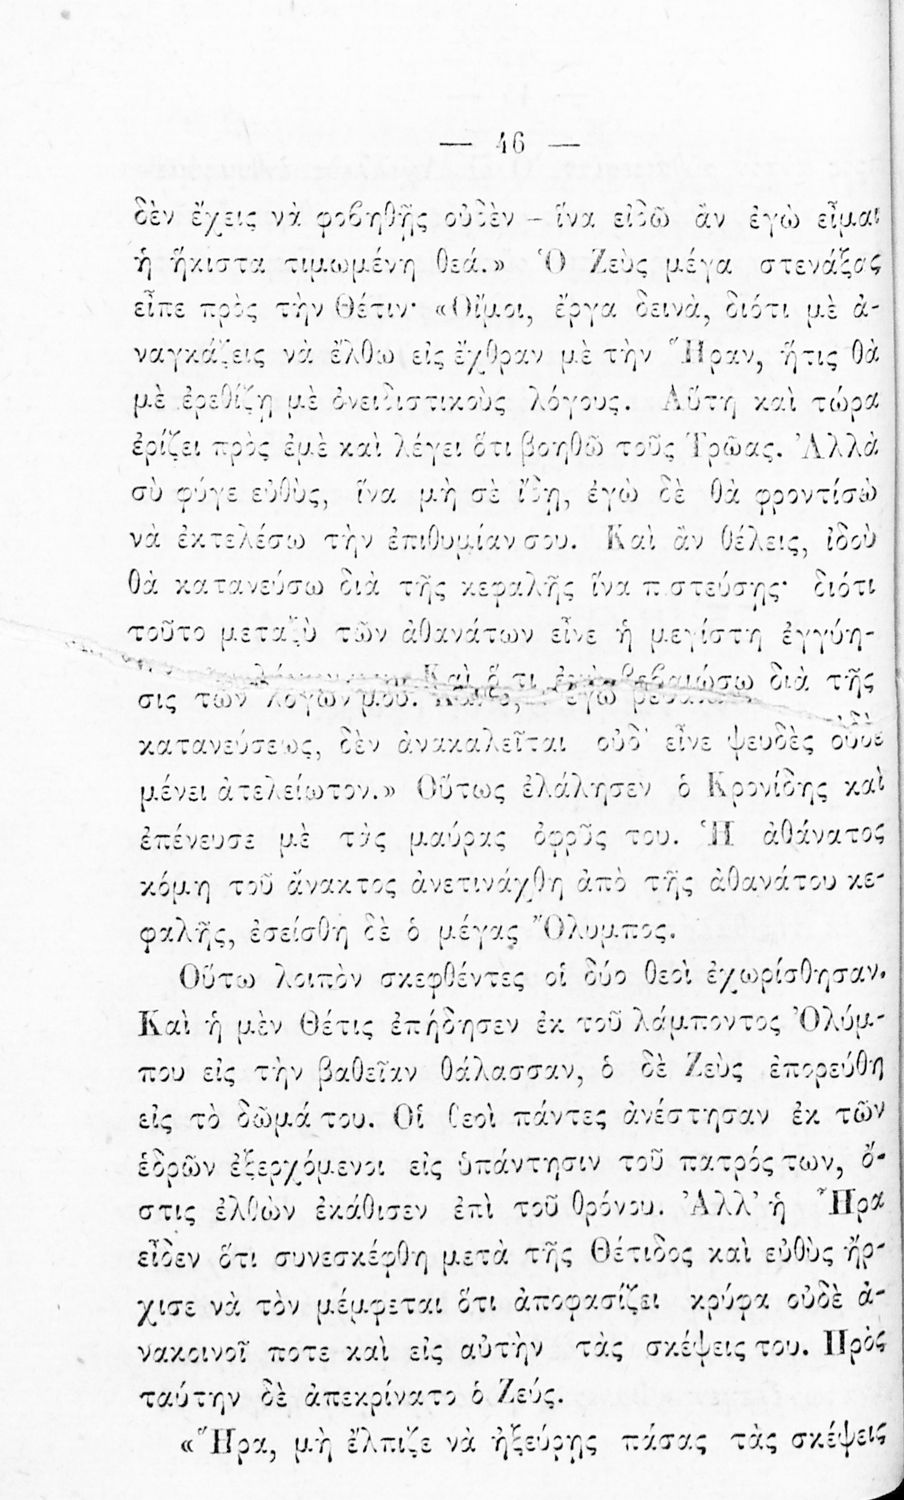 — 46 —
δὲν ἔχεις νὰ φοβηθῇς οὐδὲν – ἵνα εἰδῶ ἂν ἐγὼ εἶμαι
ἡ ἥκιστα τιμωμένη θεά.» Ὁ Ζεὺς μέγα στενάξας
εἶπε πρὸς τὴν Θέτιν· «Οἴμοι, ἔργα δεινὰ, διότι μὲ ἀ-
ναγκάζεις νὰ ἔλθω εἰς ἔχθραν μὲ τὴν Ἥραν, ἥτις θὰ
μὲ ἐρεθίζῃ μὲ ὀνειδιστικοὺς λόγους. Αὕτη καὶ τώρα
ἐρίζει πρὸς ἐμὲ καὶ λέγει ὅτι βοηθῶ τοῦς Τρῶας. Ἀλλὰ
σὺ φύγε εὐθὺς, ἵνα μὴ σὲ ἴδῃ, ἐγὼ δὲ θὰ φροντίσω
νὰ ἐκτελέσω τὴν ἐπιθυμίαν σου. Καὶ ἂν θέλεις, ἰδοὺ
θὰ κατανεύσω διὰ τῆς κεφαλῆς ἵνα πιστεύσῃς· διότι
τοῦτο μεταξὺ τῶν ἀθανάτων εἶνε ἡ μεγίστη ἐγγύη-
σις τῶν λόγων μου. Καὶ ὅ,τι ἐγὼ βεβαιώσω διὰ τῆς
κατανεύσεως, δὲν ἀνακαλεῖται οὐδ' εἶνε ψευδὲς οὐδὲ
μένει ἀτελείωτον.» Οὕτως ἐλάλησεν ὁ Κρονίδης καὶ
ἐπένευσε μὲ τὰς μαύρας ὀφρῦς του. Ἡ ἀθάνατος
κόμη τοῦ ἄνακτος ἀνετινάχθη ἀπὸ τῆς ἀθανάτου κε-
φαλῆς, ἐσείσθη δὲ ὁ μέγας Ὄλυμπος.
Οὕτω λοιπὸν σκεφθέντες οἱ δύο θεοὶ ἐχωρίσθησαν.
Καὶ ἡ μὲν Θέτις ἐπήδησεν ἐκ τοῦ λάμποντος Ὀλύμ-
που εἰς τὴν βαθεῖαν θάλασσαν, ὁ δὲ Ζεὺς ἐπορεύθη
εἰς τὸ δῶμά του. Οἱ θεοὶ πάντες ἀνέστησαν ἐκ τῶν
ἑδρῶν ἐξερχόμενοι εἰς ὑπάντησιν τοῦ πατρός των, ὅ-
στις ἐλθὼν ἐκάθισεν ἐπὶ τοῦ θρόνου. Ἀλλ' ἡ Ἥρα
εἶδεν ὅτι συνεσκέφθη μετὰ τῆς Θέτιδος καὶ εὐθὺς ἤρ-
χισε νὰ τὸν μέμφεται ὅτι ἀποφασίζει κρύφα οὐδὲ ἀ-
νακοινοῖ ποτε καὶ εἰς αὐτὴν τὰς σκέψεις του. Πρὸς
ταύτην δὲ ἀπεκρίνατο ὁ Ζεύς.
«Ἥρα, μὴ ἔλπιζε νὰ ἠξεύρῃς πάσας τὰς σκέψεις